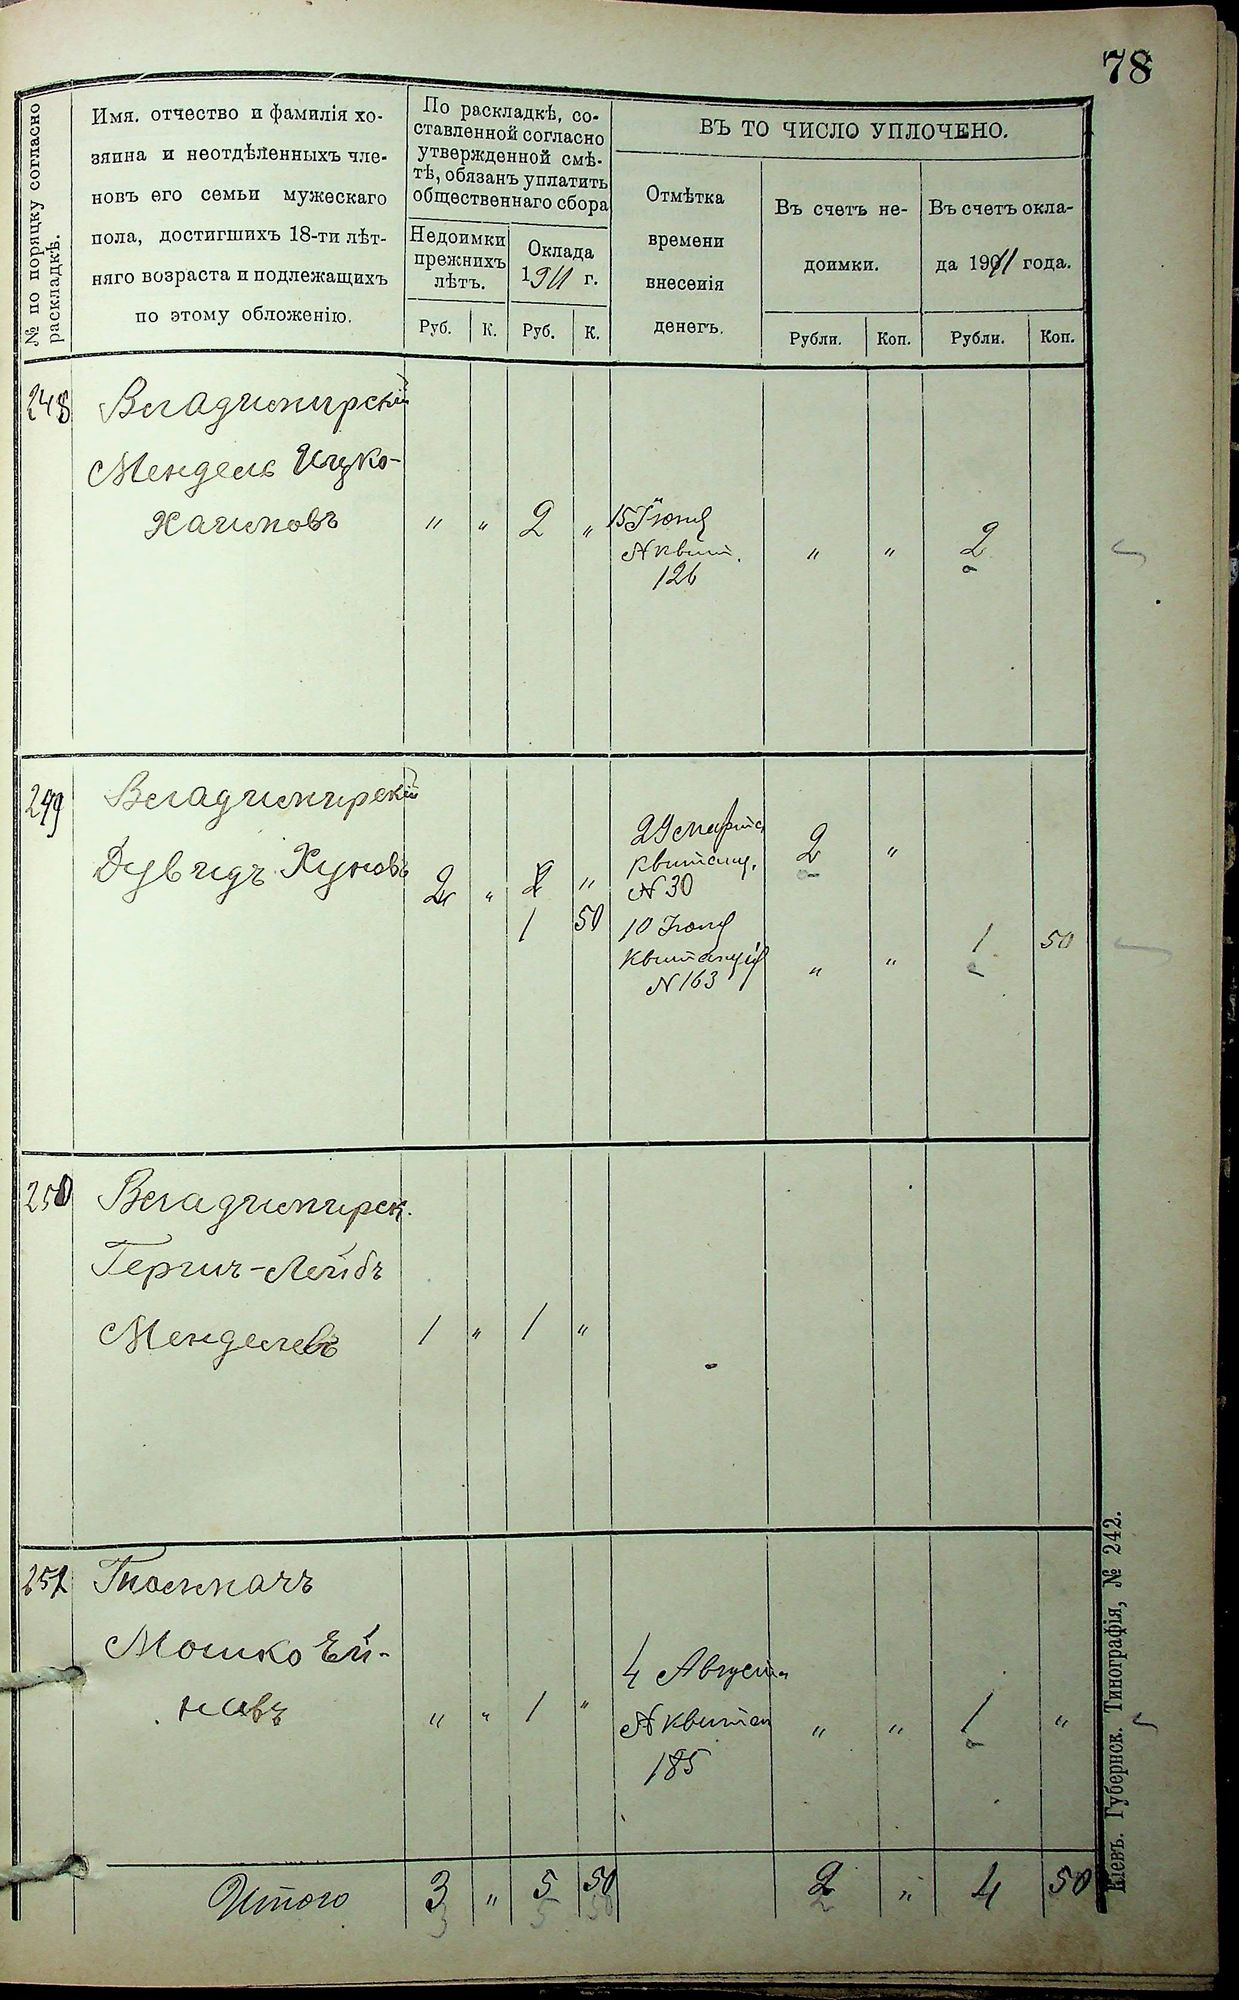 78
№ по поряцку согласно
раскладкѣ.
Имя. отчество и фамилія хо-
зяина и неотдѣленныхъ чле-
новъ его семьи мужескаго
пола, достигшихъ 18-ти лѣт-
няго возраста и подлежащихъ
по этому обложенію.
По раскладкѣ, со-
ставленной согласно
утвержденной смѣ-
тѣ, обязанъ уплатить
общественнаго сбора
Недоимки
прежнихъ
лѣтъ.
Оклада
1911 г.
Руб. К. Руб. К.
ВЪ ТО ЧИСЛО УПЛОЧЕНО.
Отмѣтка
времени
внесенія
денегъ.
Въ счетъ не-
доимки.
Въ счетъ окла-
да 1911 года.
Рубли. Коп. Рубли. Коп.
248 Владимирскій
Мендель Ицко-
Хаимовъ " " 2 " 15 Іюня
№ квит.
126 " " 2
249 Владимирскій
Дувидъ Хуновъ 2 " 2 " 29 марта
квитанц.
№ 30 2 "
1 50 10 Іюня
квитанція
№ 163 " " 1 50
250 Владимирск.
Гершъ-Лейбъ
Менделевъ 1 " 1 "
251
Мошко Ей-
новъ " " 1 " 4 Августа
№ квитан
185 " " 1 "
Итого 3 " 5 50 2 " 4 50
Кіевъ. Губернск. Типографія, № 242.